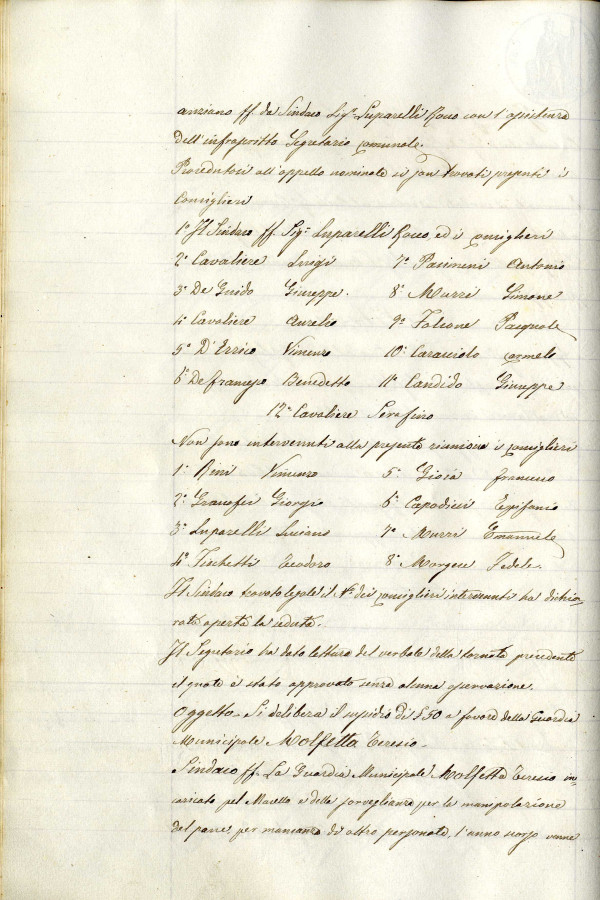 anziano ff. da Sindaco Sig.r Luparelli Rocco con l'assistenza
dell'infrascritto Segretario comunale.
Procedutosi all'appello nominale si son trovati presenti i
Consiglieri
1º Il Sindaco ff. Sig.r Luparelli Rocco, ed i consiglieri
2º Cavaliere Luigi 7º Pasimeni Antonio
3º De Guido Giuseppe. 8º Murri Simone
4º Cavaliere Aurelio 9º Falcone Pasquale
5º D'Errico Vincenzo 10º Caracciolo Carmelo
6º De Francesco Benedetto 11º Candido Giuseppe
12º Cavaliere Serafino
Non sono intervenuti alla presente riunione i consiglieri
1º Rini Vincenzo 5º Gioia Francesco
2º Granafei Giorgio 6º Capodieci Epifanio
3º Luparelli Luciano 7º Murri Emanuele
4º Ticchetti Teodoro 8º Morgese Fedele.
Il Sindaco trovato legale il N.º dei consiglieri intervenuti ha dichia-
rato aperta la seduta.
Il Segretario ha dato lettura del verbale della tornata precedente
il quale è stato approvato senza alcuna osservazione.
Oggetto - Si delibera il sussidio di £ 50 a favore della Guardia
Municipale Molfetta Teresio -
Sindaco ff. La Guardia Municipale Molfetta Teresio in-
caricato pel Macello e della sorveglianza per la manipolazione
del pane, per mancanza di altro personale, l'anno scorso venne